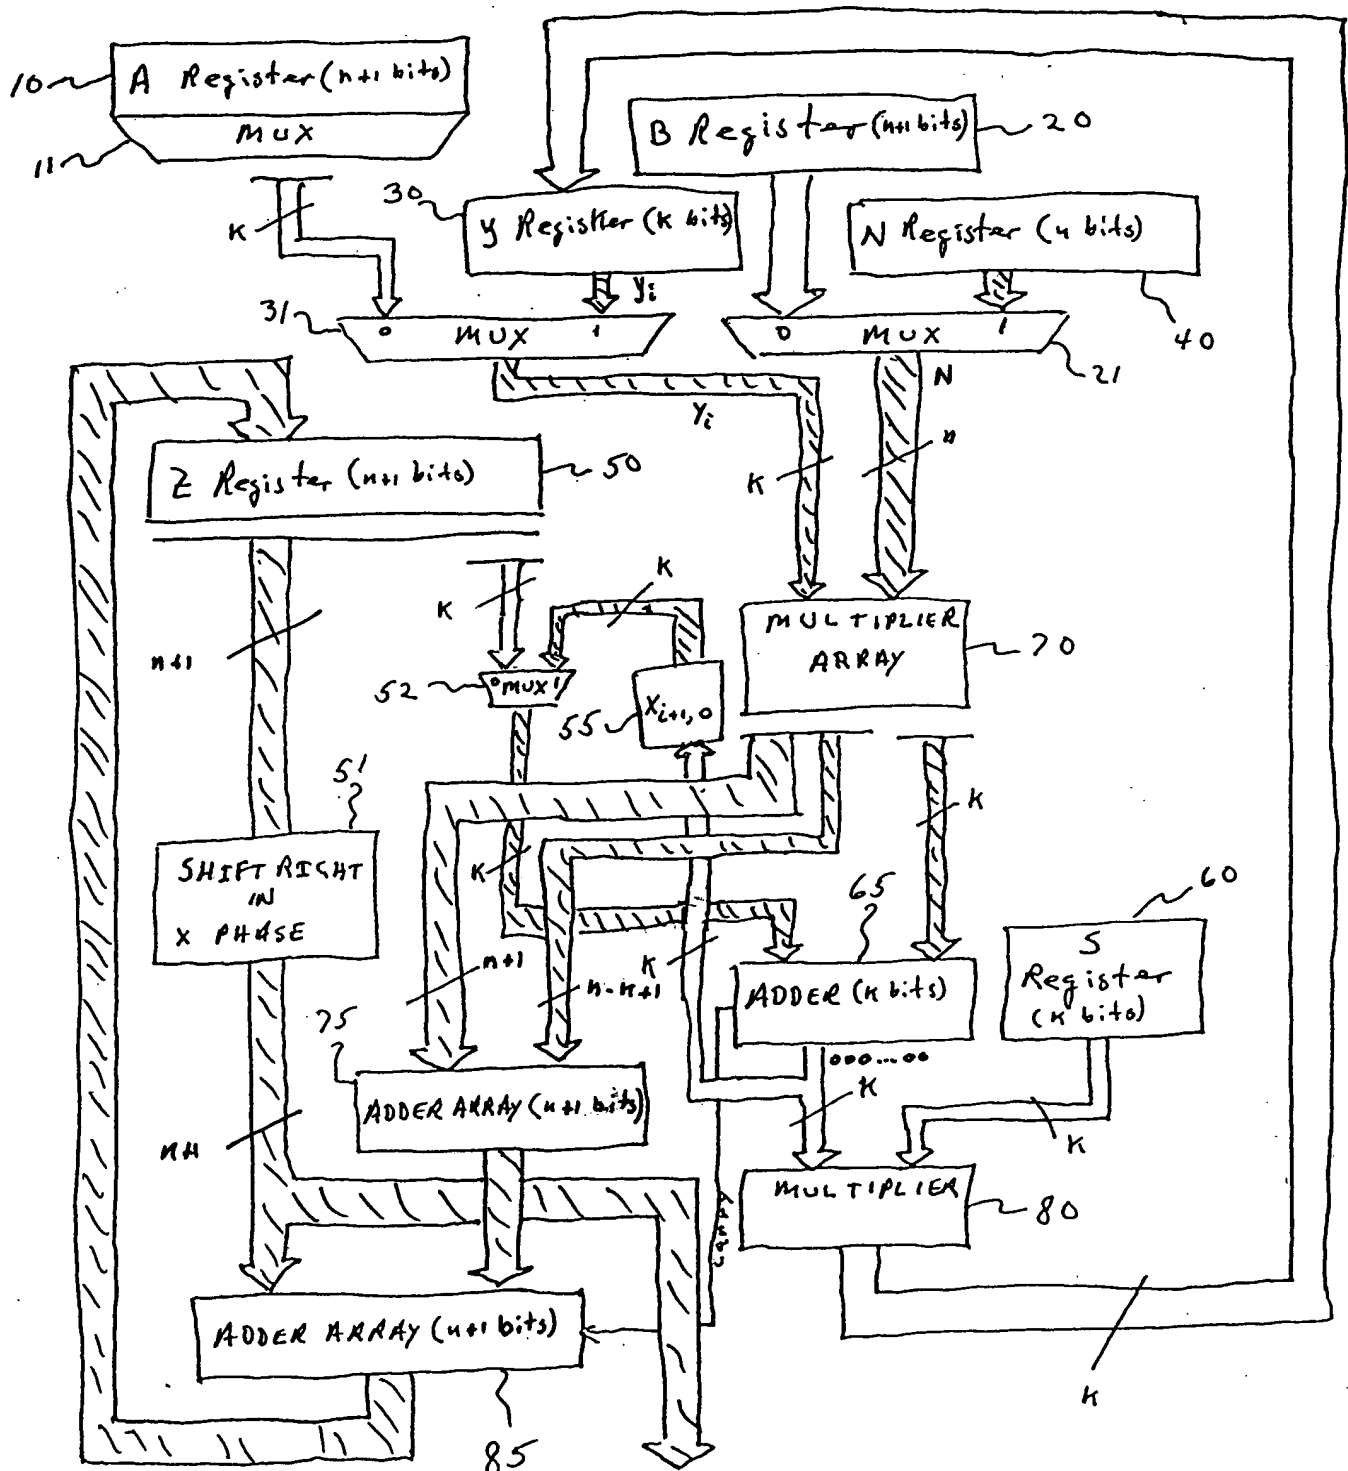 10 A Register (n+1 bits)
MUX
11
B Register (n+1 bits) 20
K
30 y Register (k bits)
N Register (n bits)
40
yi
31 0 MUX 1
0 MUX 1
21
N
Yi
K
n
Z Register (n+1 bits) 50
K
K
n+1
52 0 MUX 1
55 Xi+1,0
MULTIPLIER
ARRAY
70
51
SHIFT RIGHT
IN
X PHASE
K
K
65
60
n+1
n-k+1
K
ADDER (k bits)
S
Register
(k bits)
000...00
75
ADDER ARRAY (n+1 bits)
K
K
n+1
MULTIPLIER
80
CARRY
ADDER ARRAY (n+1 bits)
85
K